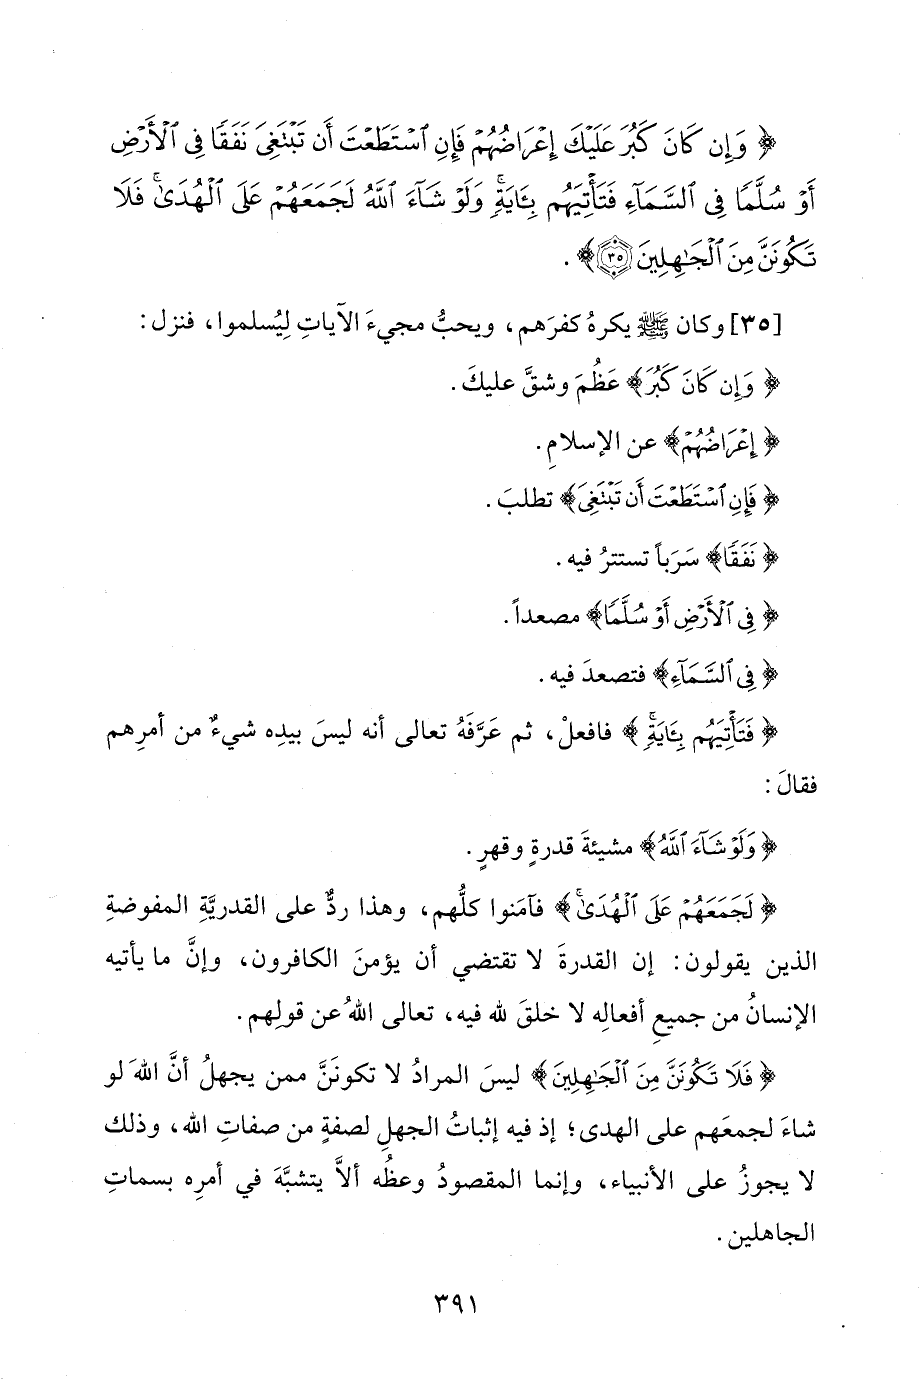 ﴿ وَإِن كَانَ كَبُرَ عَلَيْكَ إِعْرَاضُهُمْ فَإِنِ ٱسْتَطَعْتَ أَن تَبْتَغِىَ نَفَقًا فِى ٱلْأَرْضِ
أَوْ سُلَّمًا فِى ٱلسَّمَآءِ فَتَأْتِيَهُم بِـَٔايَةٍۚ وَلَوْ شَآءَ ٱللَّهُ لَجَمَعَهُمْ عَلَى ٱلْهُدَىٰۚ فَلَا
تَكُونَنَّ مِنَ ٱلْجَٰهِلِينَ ۝٣٥﴾ .
[٣٥] وكان ﷺ يكرهُ كفرَهم، ويحبُّ مجيءَ الآياتِ لِيُسلموا، فنزل:
﴿ وَإِن كَانَ كَبُرَ﴾ عَظُمَ وشقَّ عليكَ .
﴿ إِعْرَاضُهُمْ﴾ عن الإسلامِ.
﴿ فَإِنِ ٱسْتَطَعْتَ أَن تَبْتَغِىَ﴾ تطلبَ .
﴿ نَفَقًا﴾ سَرَباً تستترُ فيه .
﴿ فِى ٱلْأَرْضِ أَوْ سُلَّمًا﴾ مصعداً .
﴿ فِى ٱلسَّمَآءِ﴾ فتصعدَ فيه .
﴿ فَتَأْتِيَهُم بِـَٔايَةٍۚ ﴾ فافعلْ، ثم عَرَّفَهُ تعالى أنه ليسَ بيدِه شيءٌ من أمرِهم
فقالَ :
﴿ وَلَوْ شَآءَ ٱللَّهُ﴾ مشيئةَ قدرةٍ وقهرٍ .
﴿ لَجَمَعَهُمْ عَلَى ٱلْهُدَىٰۚ﴾ فآمَنوا كلُّهم، وهذا ردٌّ على القدريَّةِ المفوضةِ
الذين يقولون: إن القدرةَ لا تقتضي أن يؤمنَ الكافرون، وإنَّ ما يأتيه
الإنسانُ من جميعِ أفعالِه لا خلقَ لله فيه، تعالى اللهُ عن قولِهم.
﴿ فَلَا تَكُونَنَّ مِنَ ٱلْجَٰهِلِينَ﴾ ليسَ المرادُ لا تكوننَّ ممن يجهلُ أنَّ اللهَ لو
شاءَ لجمعَهم على الهدى؛ إذ فيه إثباتُ الجهلِ لصفةٍ من صفاتِ الله، وذلك
لا يجوزُ على الأنبياء، وإنما المقصودُ وعظُه ألاَّ يتشبَّهَ في أمرِه بسماتِ
الجاهلين .
٣٩١